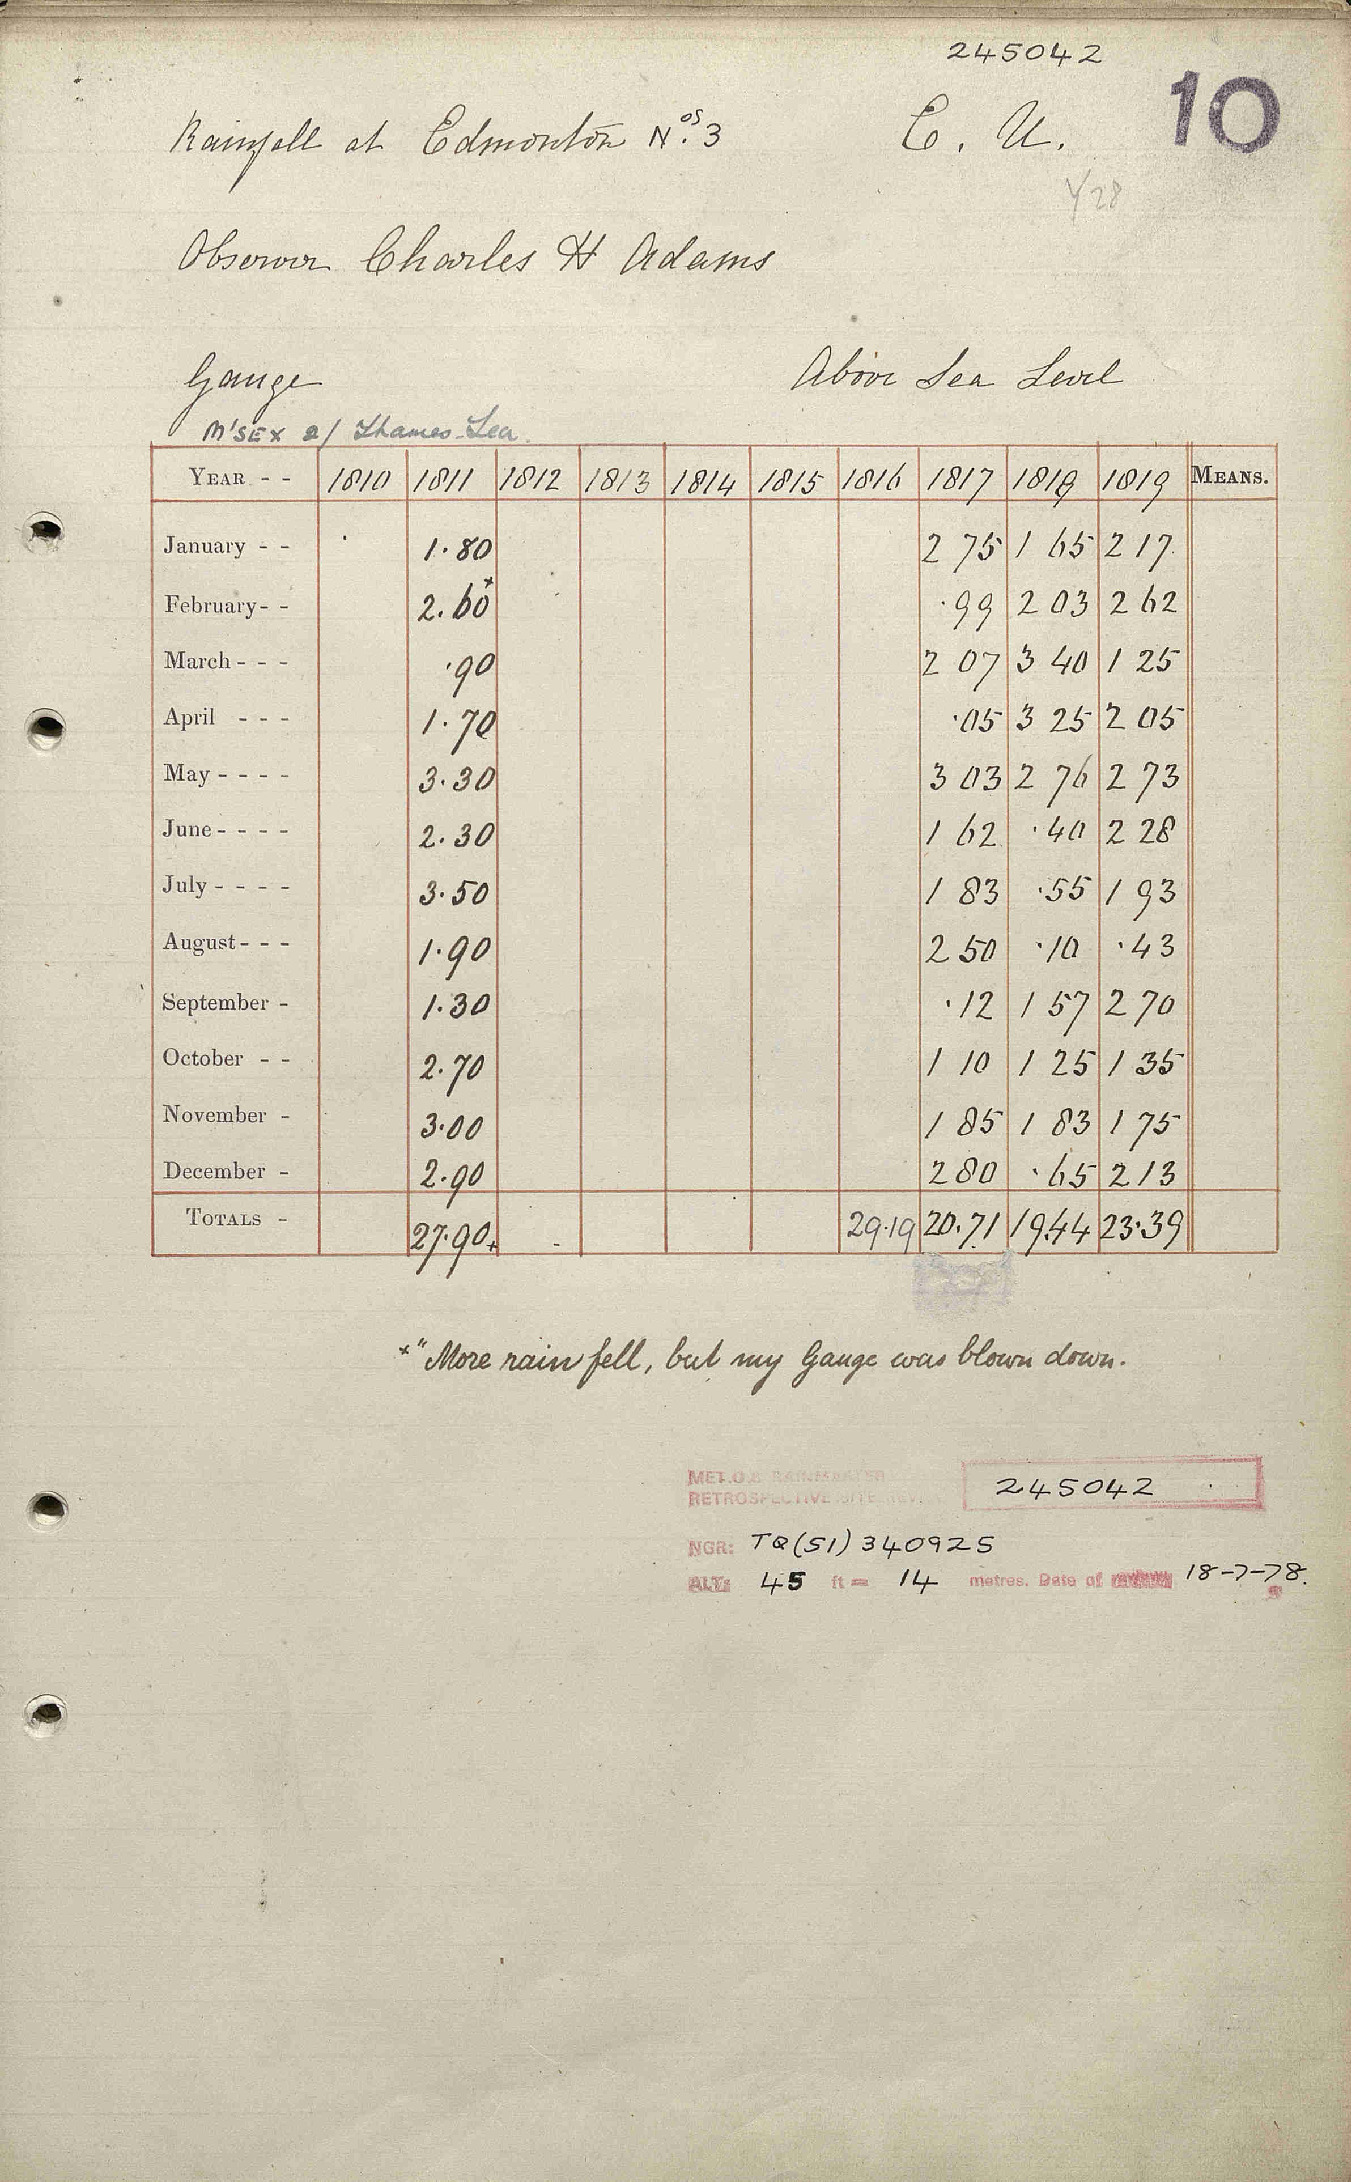 245042
10
Rainfall at Edmonton Nos. 3 C. U.
Y28
Observer Charles H Adams
Gauge Above Sea Level
M'SEX a/ Thames-Lea.
YEAR - - 1810 1811 1812 1813 1814 1815 1816 1817 1818 1819 MEANS.
January - - 1.80 2 75 1 65 2 17
February - - 2.60* .99 2 03 2 62
March - - - .90 2 07 3 40 1 25
April - - - 1.70 .05 3 25 2 05
May - - - - 3.30 3 03 2 76 2 73
June - - - - 2.30 1 62 .40 2 28
July - - - - 3.50 1 83 .55 1 93
August - - - 1.90 2 50 .10 .43
September - 1.30 .12 1 57 2 70
October - - 2.70 1 10 1 25 1 35
November - 3.00 1 85 1 83 1 75
December - 2.90 2 80 .65 2 13
TOTALS - 27.90+ 29.19 20.71 19.44 23.39
*" More rain fell, but my Gauge was blown down.
MET.O.8 RAINMASTER
RETROSPECTIVE SITE REV. 245042
NGR: TQ(51) 340925
ALT: 45 ft = 14 metres. Date of 18-7-78.